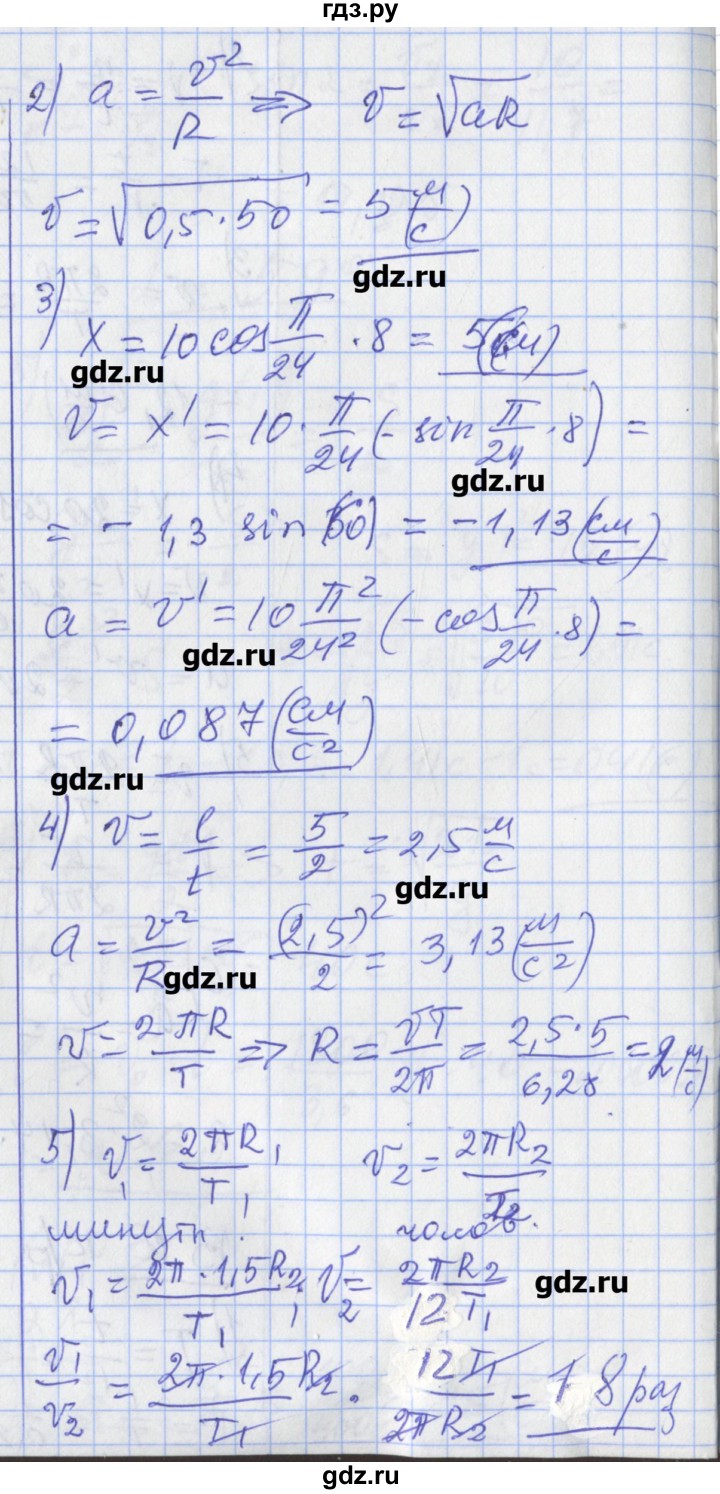 гдз.ру
2) a = v²/R => v = √aR
v = √0,5·50 = 5 (м/с)
gdz.ru
3) x = 10 cos π/24 · 8 = 5 (см)
gdz.ru
v = x' = 10 · π/24 (- sin π/24 · 8) =
gdz.ru
= - 1,3 sin (60) = -1,13 (см/с)
a = v' = 10 π²/24² (- cos π/24 · 8) =
gdz.ru
= 0,087 (см/с²)
gdz.ru
4) v = l/t = 5/2 = 2,5 м/с
gdz.ru
a = v²/R = (2,5)²/2 = 3,13 (м/с²)
gdz.ru
v = 2πR/T => R = vT/2π = 2,5·5/6,28 = 2 (м/с)
5) v₁ = 2πR₁/T₁ v₂ = 2πR₂/T₂
минутн. часов.
v₁ = 2π·1,5R₂/T₁ ; v₂ = 2πR₂/12T₁
gdz.ru
v₁/v₂ = 2π·1,5R₂/T₁ · 12T₁/2πR₂ = 18 раз
gdz.ru